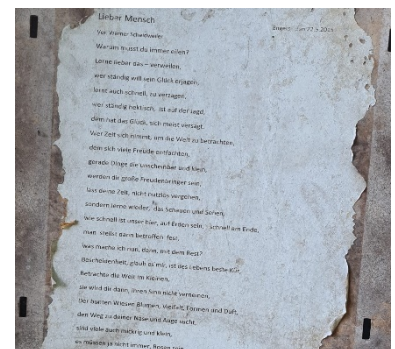 Lieber Mensch
Von Werner Scheidweiler
Warum musst du immer eilen?
Lerne lieber das – verweilen,
wer ständig will sein Glück erjagen,
lernt auch schnell, zu verzagen,
wer ständig hektisch, ist auf der Jagd,
dem hat das Glück, sich meist versagt.
Wer Zeit sich nimmt, um die Welt zu betrachten,
dem sich viele Freude entfachten,
gerade Dinge die unscheinbar und klein,
werden dir große Freudenbringer sein,
lass deine Zeit, nicht nutzlos vergehen,
sondern lerne wieder, das Schauen und Sehen,
wie schnell ist unser hier, auf Erden sein, - schnell am Ende,
man stellst dann betroffen fest,
was mache ich nun, dann, mit dem Rest?
Bescheidenheit, glaub es mir, ist des Lebens beste Kür,
Betrachte die Welt im Kleinen,
sie wird dir dann, ihren Sinn nicht verneinen,
der bunten Wiesen Blumen, Vielfalt, Formen und Duft,
den Weg zu deiner Nase und Auge sucht,
sind viele auch mickrig und klein,
es müssen ja nicht immer, Rosen sein